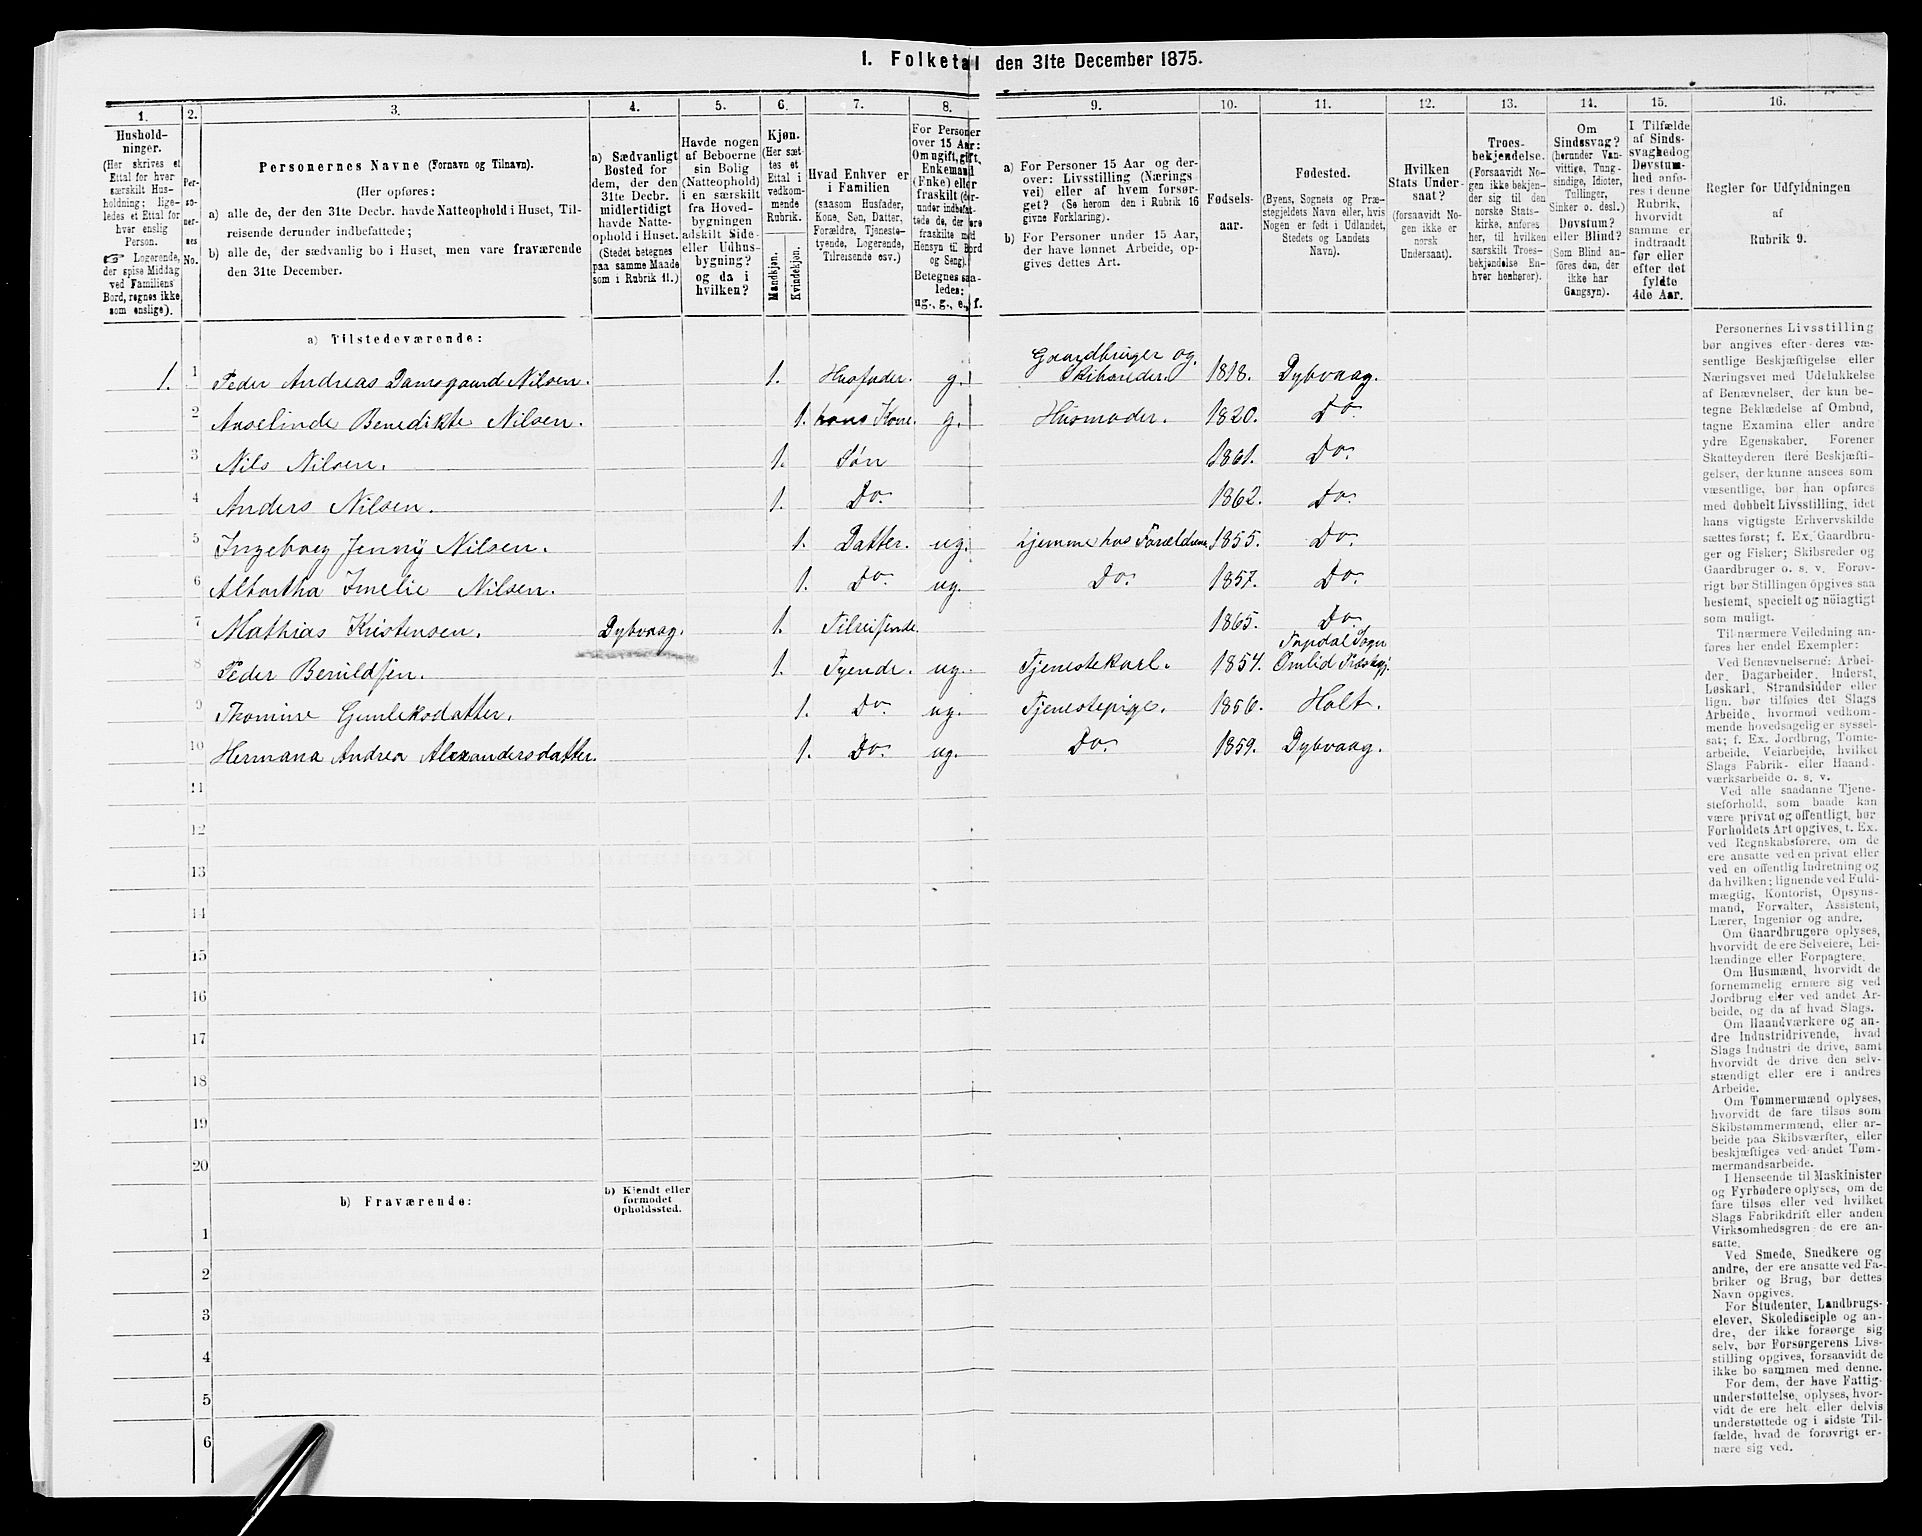 1. Folketal den 31te December 1875.
1. 2. 3. 4. 5. 6. 7. 8. 9. 10. 11. 12. 13. 14. 15. 16.
Hushold-
ninger.
(Her skrives et
Ettal for hver
særskilt Hus-
holdning; lige-
ledes et Ettal for
hver enslig
Person.
☞ Logerende,
der spise Middag
ved Familiens
Bord, regnes ikke
som enslige).
Per-
so-
ner-
nes
No.
Personernes Navne (Fornavn og Tilnavn).
(Her opføres:
a) alle de, der den 31te Decbr. havde Natteophold i Huset, Til-
reisende derunder indbefattede;
b) alle de, der sædvanlig bo i Huset, men vare fraværende
den 31te December.
a) Sædvanligt
Bosted for
dem, der den
31te Decbr.
midlertidigt
havde Natte-
ophold i Huset.
(Stedet betegnes
paa samme Maade
som i Rubrik 11.)
Havde nogen
af Beboerne
sin Bolig
(Natteophold)
i en særskilt
fra Hoved-
bygningen
adskilt Side-
eller Udhus-
bygning?
og da i
hvilken?
Kjøn.
(Her sæt-
tes et
Ettal i
vedkom-
mende
Rubrik.
Mandkjøn.
Kvindekjøn.
Hvad Enhver er
i Familien
(saasom Husfader,
Kone, Søn, Datter,
Forældre, Tjeneste-
tyende, Logerende,
Tilreisende osv.)
For Personer
over 15 Aar:
Om ugift, gift,
Enkemand
(Enke) eller
fraskilt (der-
under indbefat-
tede de, der ere
fraskilte med
Hensyn til Bord
og Seng).
Betegnes saa-
ledes:
ug., g., e., f.
a) For Personer 15 Aar og der-
over: Livsstilling (Nærings-
vei) eller af hvem forsør-
get? (Se herom den i Rubrik 16
givne Forklaring).
b) For Personer under 15 Aar,
der have lønnet Arbeide, op-
gives dettes Art.
Fødsels-
aar.
Fødested.
(Byens, Sognets og Præ-
stegjeldets Navn eller, hvis
Nogen er født i Udlandet,
Stedets og Landets
Navn).
Hvilken
Stats Under-
saat?
(forsaavidt No-
gen ikke er
norsk
Undersaat).
Troes-
bekjendelse.
(Forsaavidt No-
gen ikke bekjen-
der sig til den
norske Stats-
kirke, anføres
her, til hvilken
særskilt Troes-
bekjendelse En-
hver henhører).
Om
Sindssvag?
(herunder Van-
vittige, Tung-
sindige, Idioter,
Tullinger,
Sinker o. desl.)
Døvstum?
eller Blind?
(Som Blind an-
føres den, der
ikke har
Gangsyn).
I Tilfælde
af Sinds-
svaghed og
Døvstum-
hed anfø-
res i denne
Rubrik,
hvorvidt
samme er
indtraadt
før eller
efter det
fyldte
4de Aar.
Regler for Udfyldningen
af
Rubrik 9.
a) Tilstedeværende:
1. 1 Peder Andreas Damsgaard Nilsen. 1. Husfader. g. Gaardbruger og Skibsreder. 1818. Dybvaag.
2 Anselinde Benedikte Nilsen. 1. hans Kone. g. Husmoder. 1820. Do
3 Nils Nilsen. 1. Søn 1861. Do.
4 Anders Nilsen. 1. Do. 1862. Do.
5 Ingeborg Jenny Nilsen. 1. Datter. ug. hjemme hos Forældrene 1855. Do.
6 Albertha Emelie Nilsen. 1. Do. ug. Do. 1857. Do.
7 Mathias Kristensen. Dybvaag. 1. Tilreisende. 1865. Do.
8 Peder Beruldsen. 1. Tyende. ug. Tjenestekarl. 1854. Topdal Sogn Omlid Præstegj.
9 Thomine Gunleksdatter. 1. Do. ug. Tjenestepige. 1856. Holt.
10 Hermana Andrea Alexandersdatter. 1. Do. ug. Do. 1859. Dybvaag.
11
12
13
14
15
16
17
18
19
20
b) Fraværende:
b) Kjendt eller
formodet
Opholdssted.
1
2
3
4
5
6
Personernes Livsstilling
bør angives efter deres væ-
sentlige Beskjæftigelse eller
Næringsvei med Udelukkelse
af Benævnelser, der kun be-
tegne Beklædelse af Ombud,
tagne Examina eller andre
ydre Egenskaber. Forener
Skatteyderen flere Beskjæfti-
gelser, der kunne ansees som
væsentlige, bør han opføres
med dobbelt Livsstilling, idet
hans vigtigste Erhvervskilde
sættes først; f. Ex. Gaardbru-
ger og Fisker; Skibsreder og
Gaardbruger o. s. v. Forøv-
rigt bør Stillingen opgives saa
bestemt, specielt og nöiagtigt
som muligt.
Til nærmere Veiledning an-
føres her endel Exempler:
Ved Benævnelserne: Arbei-
der, Dagarbeider, Inderst,
Løskarl, Strandsidder eller
lign. bør tilføies det Slags
Arbeide, hvormed vedkom-
mende hovedsagelig er syssel-
sat; f. Ex. Jordbrug, Tomte-
arbeide, Veiarbeide, hvilket
Slags Fabrik- eller Haand-
værksarbeide o. s. v.
Ved alle saadanne Tjene-
steforhold, som baade kan
være privat og offentligt, bør
Forholdets Art opgives, t. Ex.
ved Regnskabsførere, om de
ere ansatte ved en privat eller
ved en offentlig Indretning og
da hvilken; lignende ved Fuld-
mægtig, Kontorist, Opsyns-
mand, Forvalter, Assistent,
Lærer, Ingeniør og andre.
Om Gaardbrugere oplyses,
hvorvidt de ere Selveiere, Lei-
lændinge eller Forpagtere.
Om Husmænd, hvorvidt de
fornemmelig ernære sig ved
Jordbrug eller ved andet Ar-
beide, og da af hvad Slags.
Om Haandværkere og an-
dre Industridrivende, hvad
Slags Industri de drive, samt
hvorvidt de drive den selv-
stændigt eller ere i andres
Arbeide.
Om Tømmermænd oplyses,
hvorvidt de fare tilsøs som
Skibstømmermænd, eller ar-
beide paa Skibsværfter, eller
beskjæftiges ved andet Tøm-
mermandsarbeide.
I Henseende til Maskinister
og Fyrbødere oplyses, om de
fare tilsøs eller ved hvilket
Slags Fabrikdrift eller anden
Virksomhedsgren de ere an-
satte.
Ved Smede, Snedkere og
andre, der ere ansatte ved Fa-
briker og Brug, bør dettes
Navn opgives.
For Studenter, Landbrugs-
elever, Skoledisciple og an-
dre, der ikke forsørge sig
selv, bør Forsørgerens Livs-
stilling opgives, forsaavidt de
ikke bo sammen med denne.
For dem, der have Fattig-
understøttelse, oplyses, hvor-
vidt de ere helt eller delvis
understøttede og i sidste Til-
fælde, hvad de forøvrigt er-
nære sig ved.